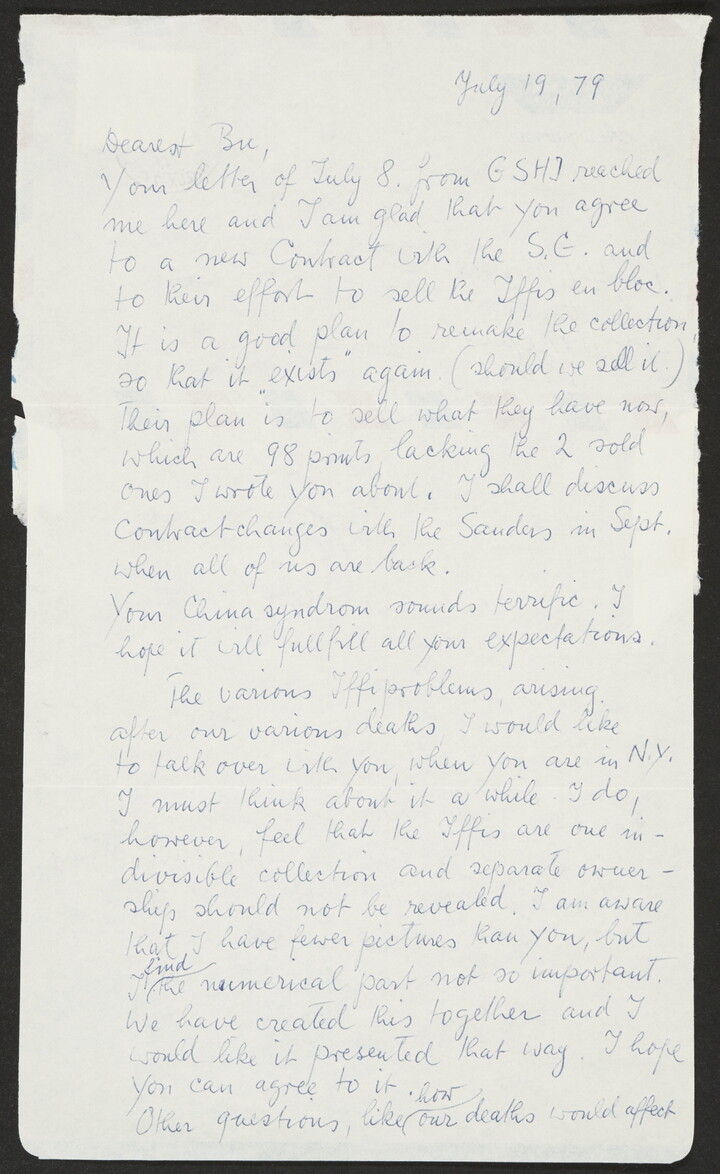 July 19, 79
Dearest Bu,
Your letter of July 8. from GSHJ reached
me here and I am glad that you agree
to a new Contract with the S.G. and
to their effort to sell the Iffis en bloc.
It is a good plan to remake the collection,
so that it „exists" again. (should we sell it.)
Their plan is to sell what they have now,
which are 98 prints lacking the 2 sold
ones I wrote you about. I shall discuss
Contractchanges with the Sanders in Sept.
when all of us are back.
Your China syndrom sounds terrific. I
hope it will fullfill all your expectations.
The various Iffiproblems, arising
after our various deaths, I would like
to talk over with you, when you are in N.Y.
I must think about it a while. I do,
however, feel that the Iffis are one in-
divisible collection and separate owner-
ship should not be revealed. I am aware
that I have fewer pictures than you, but
I find the numerical part not so important.
We have created this together and I
would like it presented that way. I hope
you can agree to it.
Other questions, like how our deaths would affect